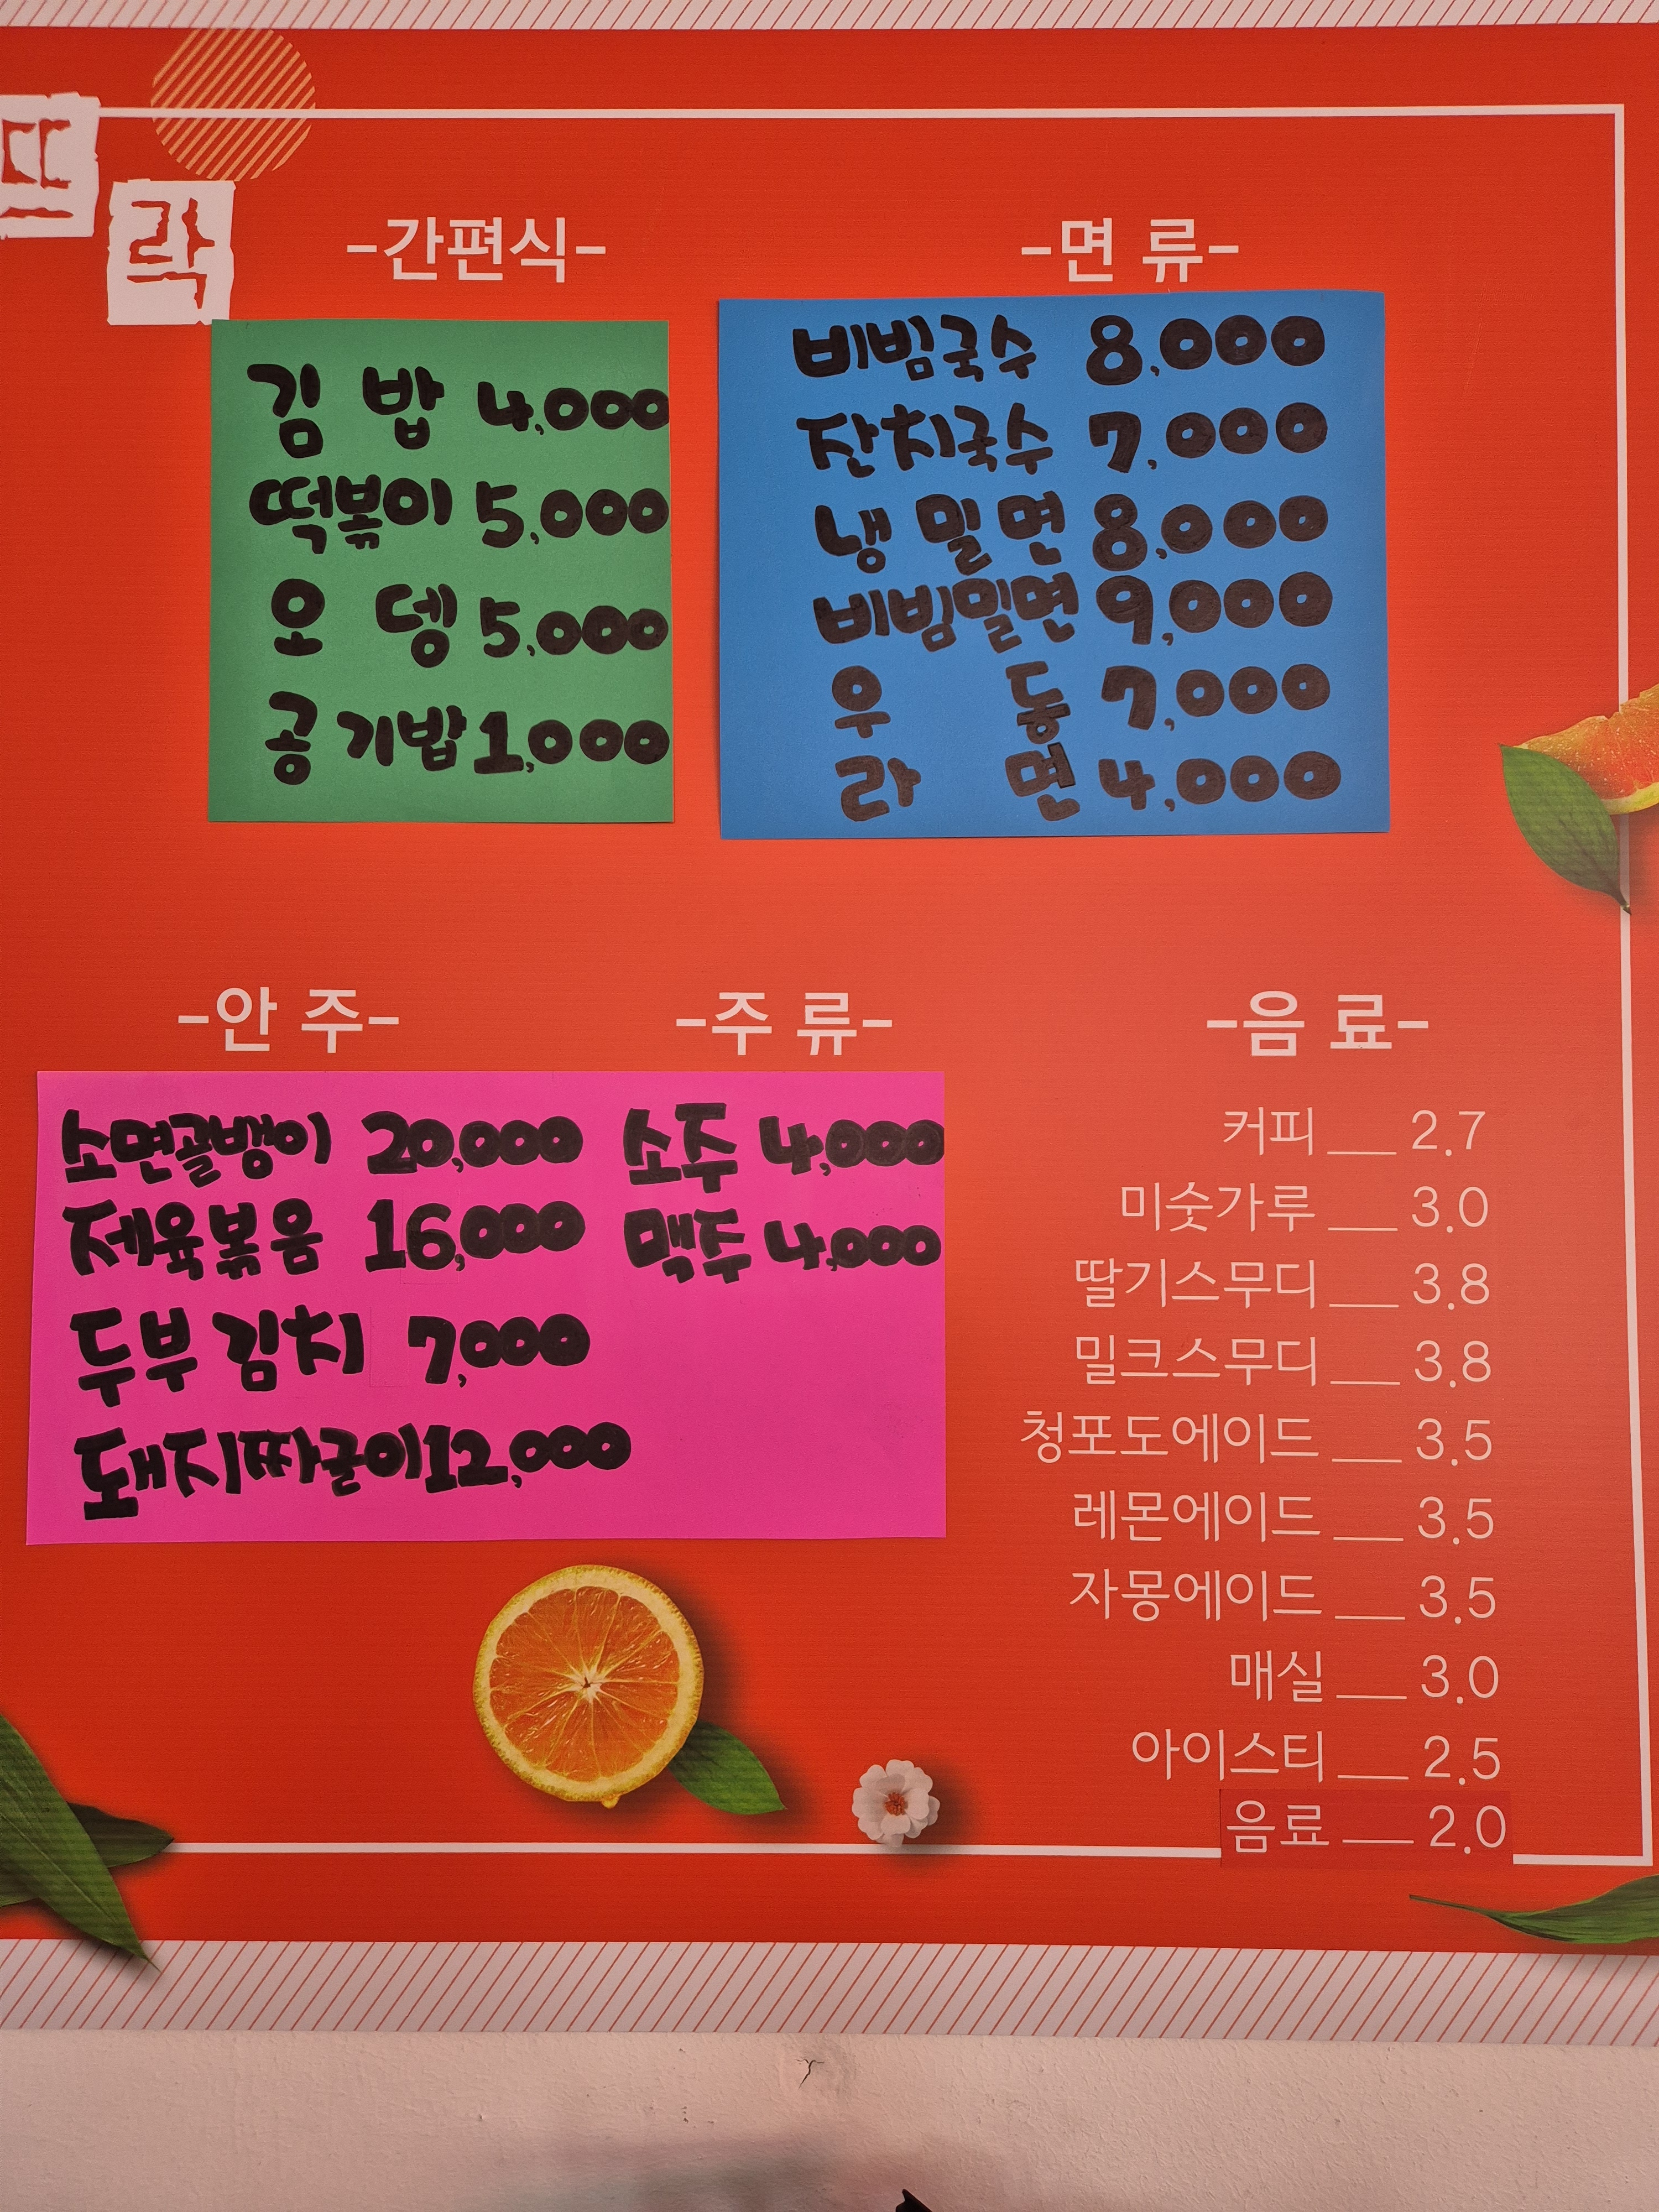 뜨
락
-간편식-
김 밥 4,000
떡볶이 5,000
오 뎅 5,000
공기밥 1,000
-면 류-
비빔국수 8,000
잔치국수 7,000
냉 밀 면 8,000
비빔밀면 9,000
우 동 7,000
라 면 4,000
-안 주-
소면골뱅이 20,000
제육볶음 16,000
두부김치 7,000
돼지짜글이 12,000
-주 류-
소주 4,000
맥주 4,000
-음 료-
커피 __ 2.7
미숫가루 __ 3.0
딸기스무디 __ 3.8
밀크스무디 __ 3.8
청포도에이드 __ 3.5
레몬에이드 __ 3.5
자몽에이드 __ 3.5
매실 __ 3.0
아이스티 __ 2.5
음료 __ 2.0